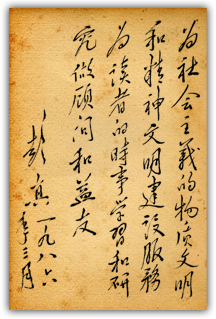 为社会主義的物质文明
和精神文明建设服務
为读者的時事学習和研
究做顾问和益友
彭真一九八六
年三月